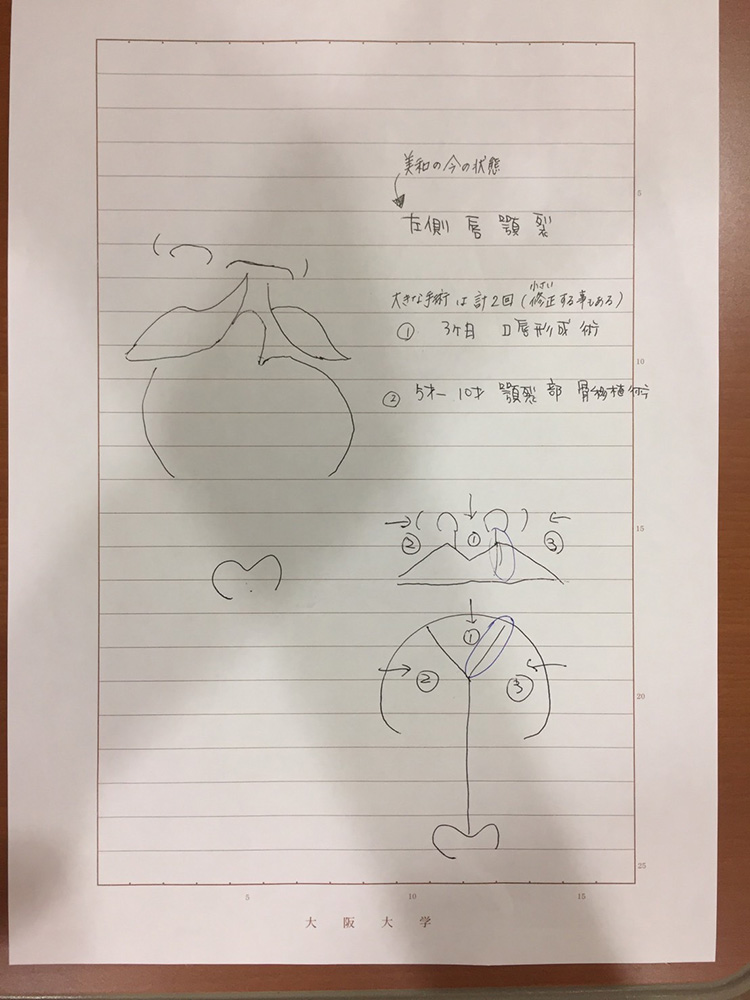 美和の今の状態
左側 唇 顎 裂
大きな手術 は 計2回 (小さい修正する事もある)
① 3ヶ月 口唇形成 術
② 5才ー10才 顎裂 部 骨移植術
5
10
15
② ① ③
①
② ③
20
25
5 10 15
大阪大学